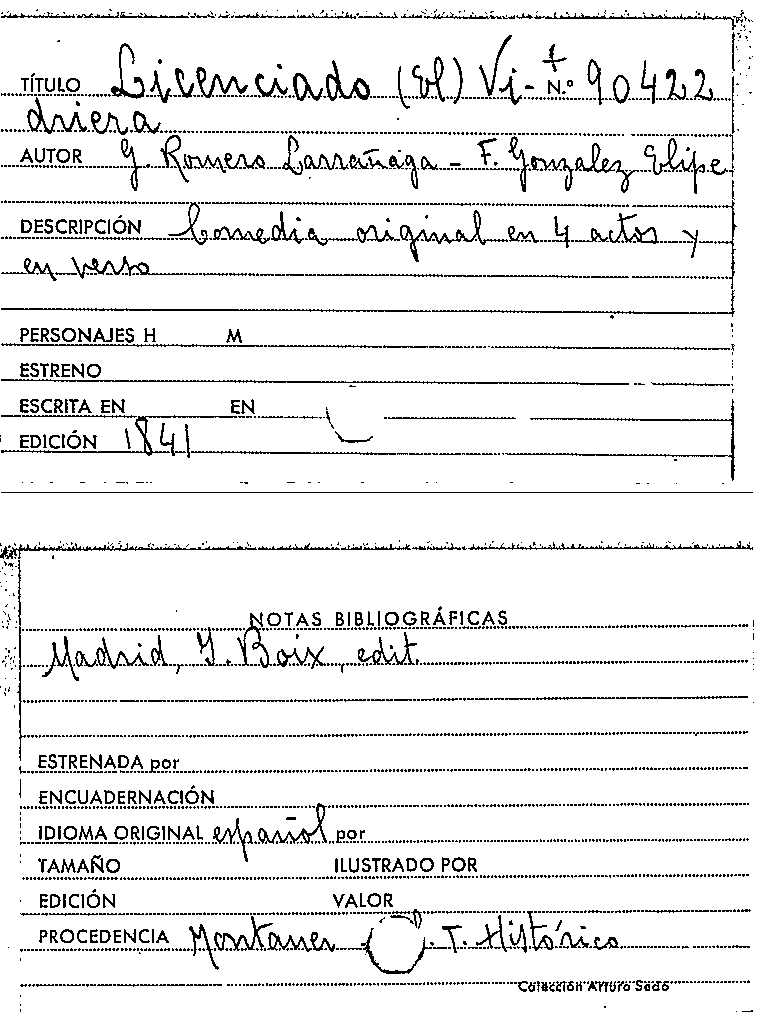 TÍTULO Licenciado (El) Vi- N.º 90422
driera
AUTOR G. Romero Larrañaga - F. Gonzalez Elipe
DESCRIPCIÓN Comedia original en 4 actos y
en verso
PERSONAJES H M
ESTRENO
ESCRITA EN EN
EDICIÓN 1841
NOTAS BIBLIOGRÁFICAS
Madrid, I. Boix, edit.
ESTRENADA por
ENCUADERNACIÓN
IDIOMA ORIGINAL español por
TAMAÑO ILUSTRADO POR
EDICIÓN VALOR
PROCEDENCIA Montaner T. Histórico
Colección Arturo Sedó